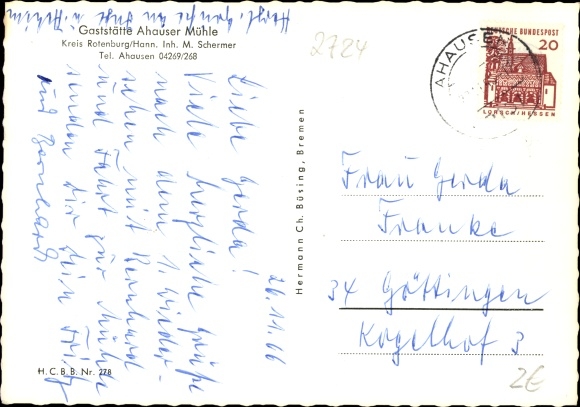 Herzl. Grüße an Inge u. Achim
Gaststätte Ahauser Mühle
Kreis Rotenburg/Hann. Inh. M. Schermer
Tel. Ahausen 04269/268
26.11.66
Liebe Gerda!
Viele herzliche Grüße
nach dem 1. Wieder-
sehen mit Bernhard
und Fahrt zur Mühle
senden dir dein Fritz
und Bernhard
H. C. B. B. Nr. 278
Hermann Ch. Büsing, Bremen
2724
AHAUSEN
DEUTSCHE BUNDESPOST
20
LORSCH/HESSEN
Frau Gerda
Franke
34 Göttingen
Kogelhof 3
2€